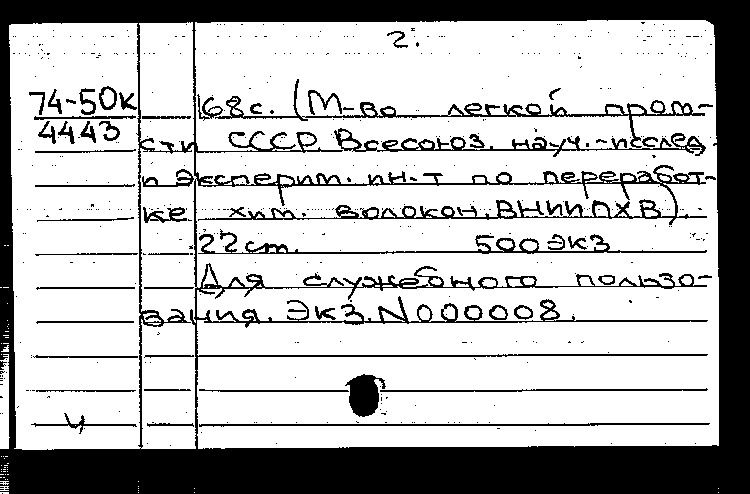 2.
74-50к 68с. (М-во легкой пром-
4443 сти СССР. Всесоюз. науч.-исслед.
и эксперим. ин-т по переработ-
ке хим. волокон. ВНИИПХВ).
22 cm. 500 экз
Для служебного пользо-
вания. Экз. N 000008.
ч